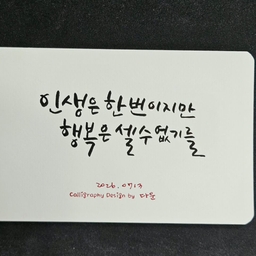 인생은 한번이지만
행복은 셀수없기를
2026.0713
Calligraphy Design by 다운